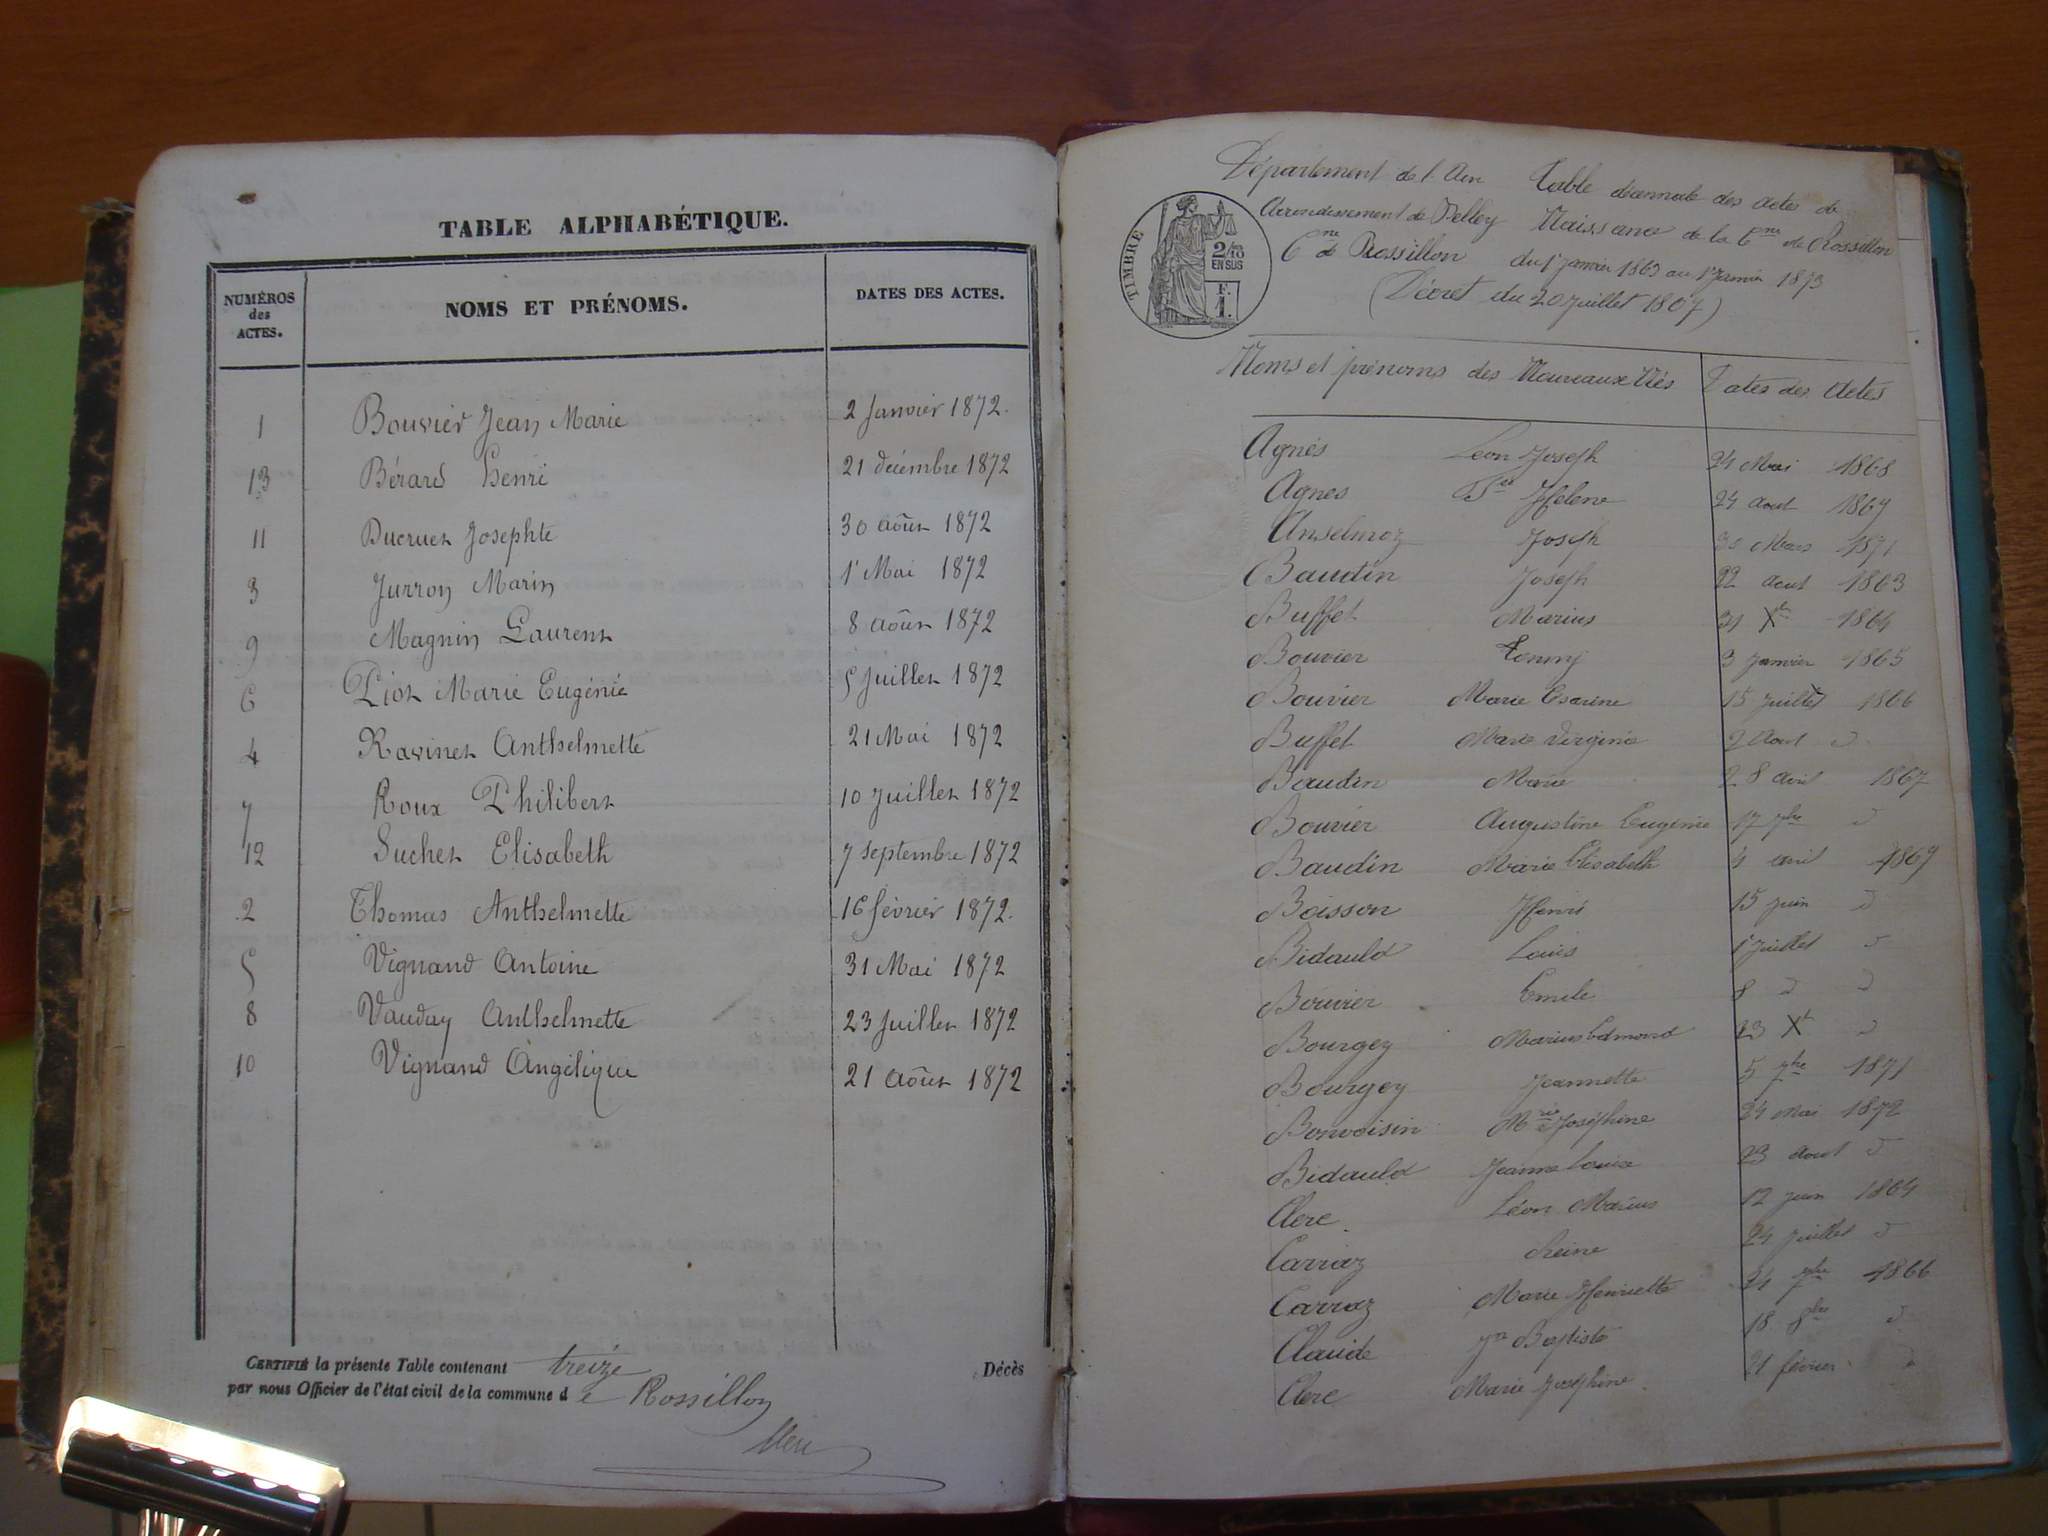 TABLE ALPHABÉTIQUE.
NUMÉROS des ACTES. NOMS ET PRÉNOMS. DATES DES ACTES.
1 Bouvier Jean Marie 2 Janvier 1872.
13 Bérard Henri 21 décembre 1872
11 Ducruet Josephte 30 août 1872
3 Jurron Marin 1er Mai 1872
9 Magnin Laurent 8 août 1872
6 Piot Marie Eugénie 5 Juillet 1872
4 Ravinet Anthelmette 21 Mai 1872
7 Roux Philibert 10 Juillet 1872
12 Suchet Elisabeth 7 septembre 1872
2 Thomas Anthelmette 16 février 1872.
5 Vignand Antoine 31 Mai 1872
8 Vauday Anthelmette 23 Juillet 1872
10 Vignand Angélique 21 août 1872
CERTIFIÉ la présente Table contenant treize Décès
par nous Officier de l'état civil de la commune de Rossillon
Département de l'Ain Table décennale des actes de
Arrondissement de Belley Naissance de la Cne de Rossillon
Cne de Rossillon du 1er janvier 1863 au 1er Janvier 1873
(Décret du 20 Juillet 1807)
TIMBRE
2/10 EN SUS
F. 1.
Noms et prénoms des Nouveaux Nés Dates des Actes
Agnès Léon Joseph 24 Mai 1868
Agnes Hélène 24 aout 1869
Anselmoz Joseph Mars 1871
Baudin Joseph 22 aout 1863
Buffet Marius 31 Xbre 1864
Bouvier 3 Janvier 1865
Bouvier Marie Césarine 15 juillet 1866
Buffet Marie Virginie 2 Aout d
Baudin Marie 28 avril 1867
Bouvier Augustine Eugénie 17 7bre d
Baudin Marie Elisabeth 4 avril 1869
Boisson Henri 15 juin d
Bidauld Louis 1er juillet d
Bouvier Emile 8 d d
Bourgey Marius Edmond 23 Xbre d
Bourgey Jeannette 5 7bre 1871
Bonvoisin Mrie Joséphine 24 Mai 1872
Bidauld Jeanne Louise 23 aout d
Clerc Léon Marius 12 juin 1864
Carriaz Reine 24 juillet d
Carraz Marie Henriette 24 7bre 1866
Claude Jn Baptiste 18 8bre d
Clerc Marie Joséphine 21 février d